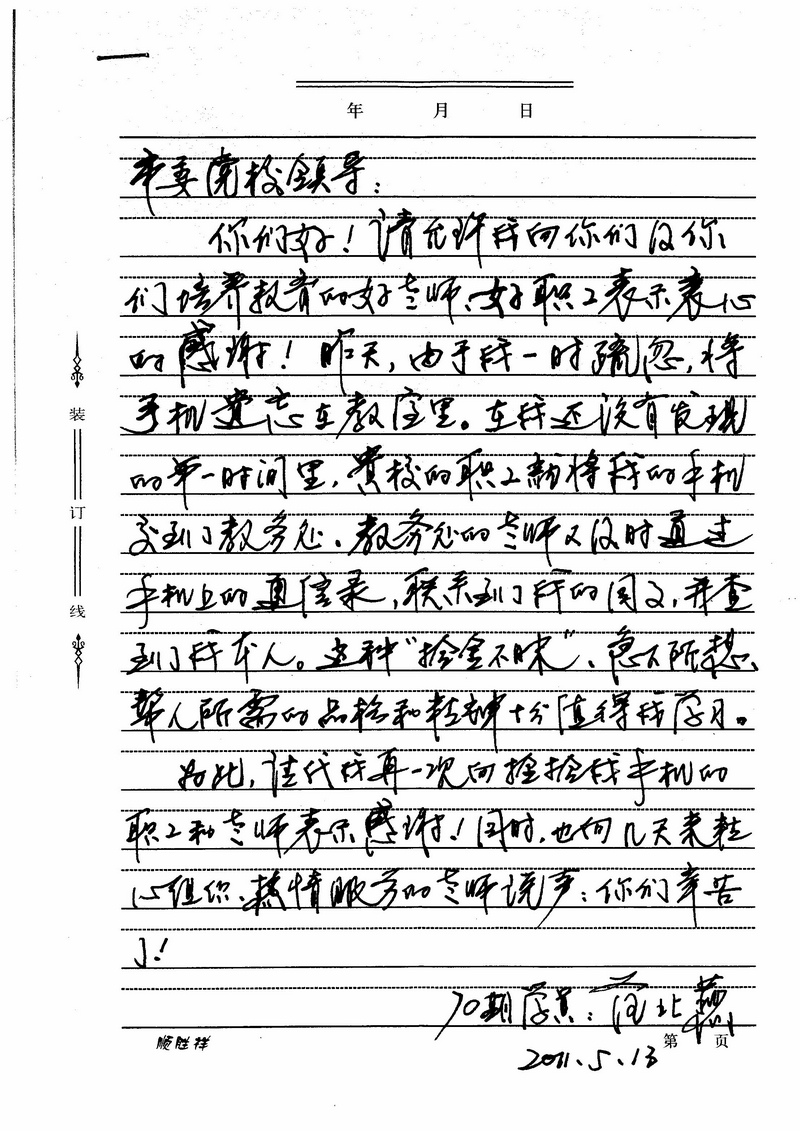 年 月 日
市委党校领导：
你们好！请允许我向你们及你
们培养教育的好老师、好职工表示衷心
的感谢！昨天，由于我一时疏忽，将
手机遗忘在教室里。在我还没有发现
的第一时间里，贵校的职工就将我的手机
交到了教务处、教务处的老师又及时通过
手机上的通信录，联系到了我的同文，并查
到了我本人。这种“拾金不昧”、急人所想、
帮人所需的品格和精神十分值得我学习。
为此，请代我再一次向捡拾我手机的
职工和老师表示感谢！同时，也向几天来精
心组织、热情服务的老师说声：你们辛苦
了！
70期学员：
2011.5.13
装
订
线
顺胜祥
第 页